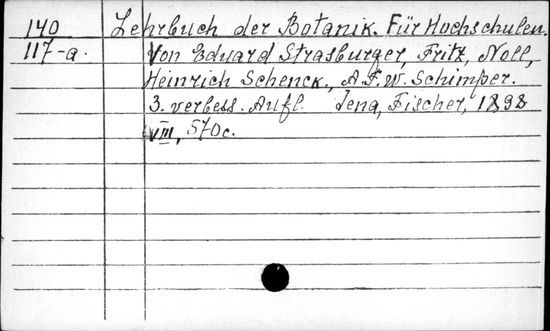 140 Lehrbuch der Botanik. Für Hochschulen.
117-a. Von Eduard Strasburger, Fritz, Noll,
Heinrich Schenck., A.F.W. Schimper.
3. verbess. Aufl. Jena, Fischer, 1898
VIII, 570c.